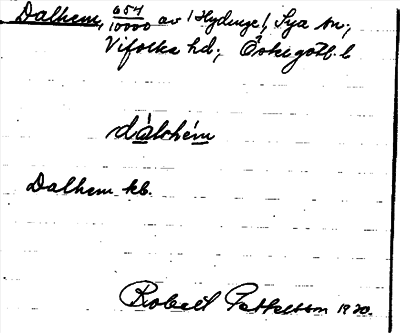 Dalhem, 654/10000 av (Hydinge), Sya sn;
Vifolka hd; Östergötl. l.
dálhèm
Dalhem kb.
Robert Pettersson 1920.